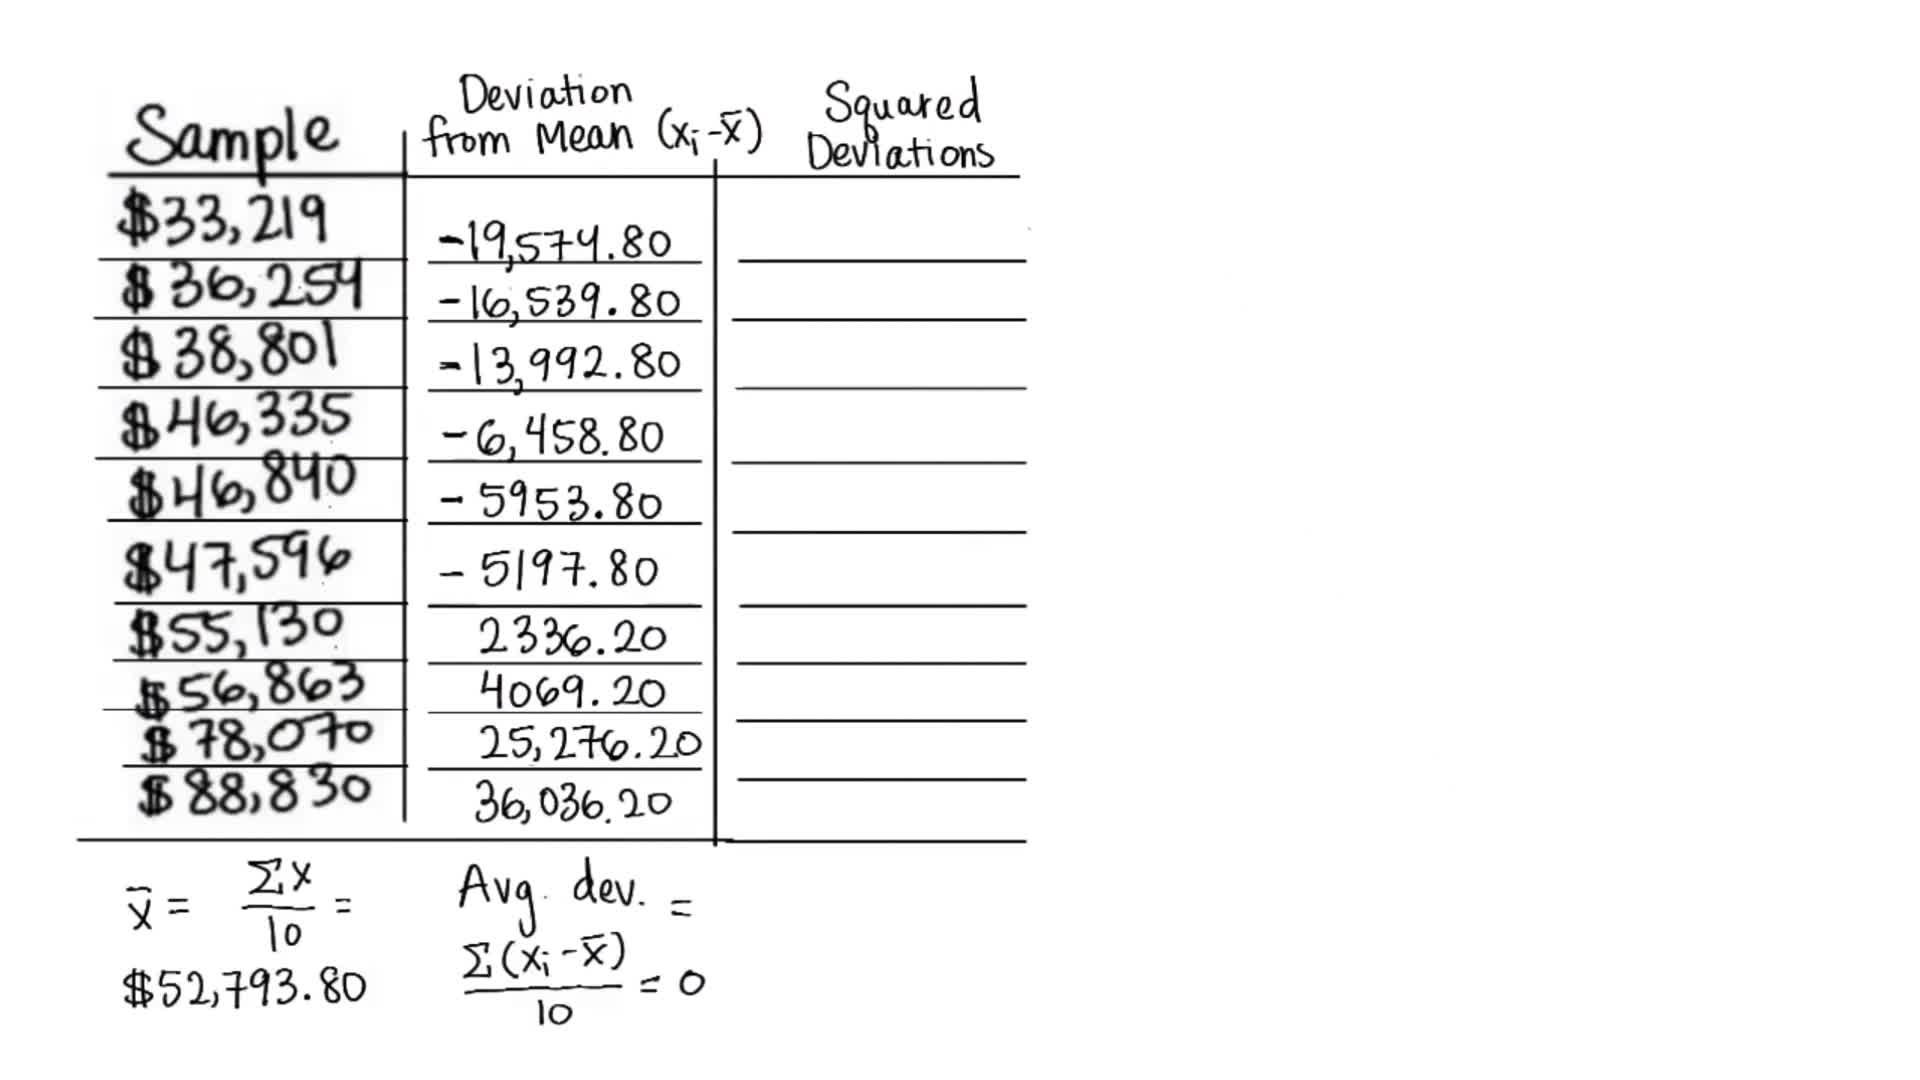 Sample
Deviation
from Mean (xᵢ-x̄)
Squared
Deviations
$33,219
-19,574.80
$36,254
-16,539.80
$38,801
-13,992.80
$46,335
-6,458.80
$46,840
-5953.80
$47,596
-5197.80
$55,130
2336.20
$56,863
4069.20
$78,070
25,276.20
$88,830
36,036.20
x̄ = Σx/10 =
$52,793.80
Avg. dev. =
Σ(xᵢ-x̄)/10 = 0